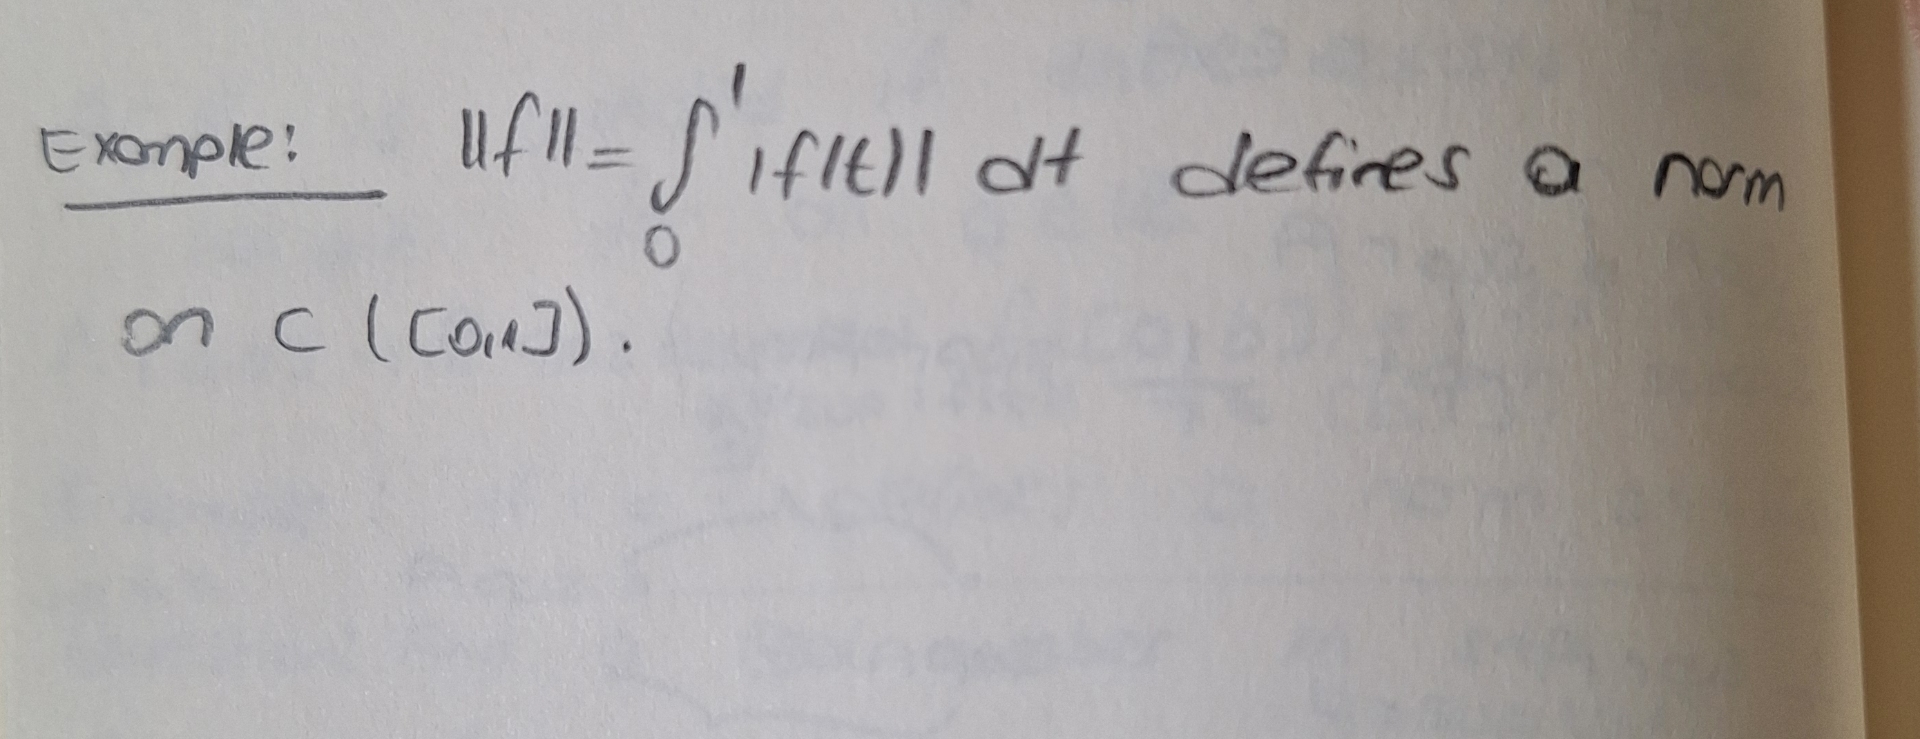 Example: ||f|| = ∫₀¹ |f(t)| dt defines a norm
on C ([0,1]).